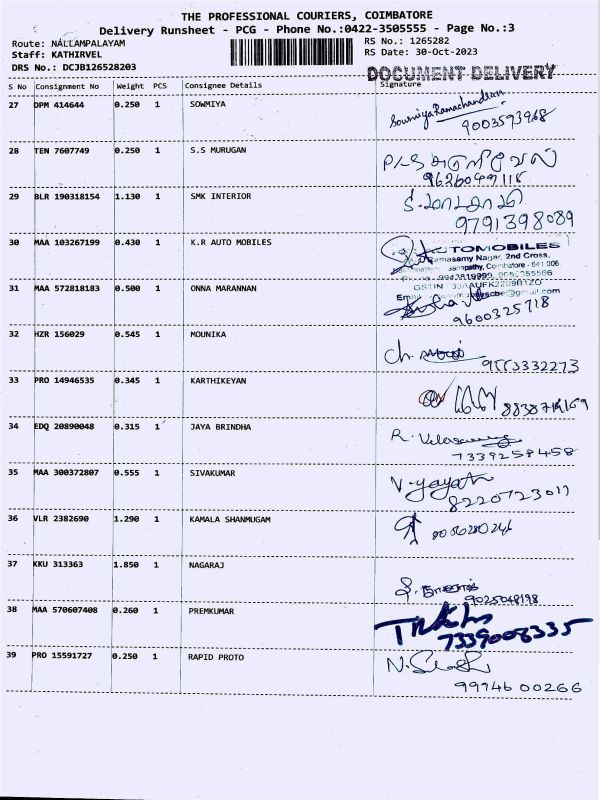 THE PROFESSIONAL COURIERS, COIMBATORE
Delivery Runsheet - PCG - Phone No.:0422-3505555 - Page No.:3
Route: NALLAMPALAYAM
RS No.: 1265282
Staff: KATHIRVEL
RS Date: 30-Oct-2023
DRS No.: DCJB126528203
DOCUMENT DELIVERY
S No Consignment No Weight PCS Consignee Details Signature
27 DPM 414644 0.250 1 SOWMIYA
Sowmiya Ramachandran
9003593968
28 TEN 7607749 0.250 1 S.S MURUGAN
9626049118
29 BLR 190318154 1.130 1 SMK INTERIOR
9791398089
30 MAA 103267199 0.430 1 K.R AUTO MOBILES
AUTOMOBILES
Ramasamy Nagar, 2nd Cross,
Coimbatore - 641 006.
31 MAA 572818183 0.500 1 ONNA MARANNAN
9600325718
32 HZR 156029 0.545 1 MOUNIKA
9553332273
33 PRO 14946535 0.345 1 KARTHIKEYAN
34 EDQ 20890048 0.315 1 JAYA BRINDHA
R. Velasamy
7339258458
35 MAA 300372807 0.555 1 SIVAKUMAR
8220723011
36 VLR 2382690 1.290 1 KAMALA SHANMUGAM
37 KKU 313363 1.850 1 NAGARAJ
9025048198
38 MAA 570607408 0.260 1 PREMKUMAR
7339008335
39 PRO 15591727 0.250 1 RAPID PROTO
99946 00266